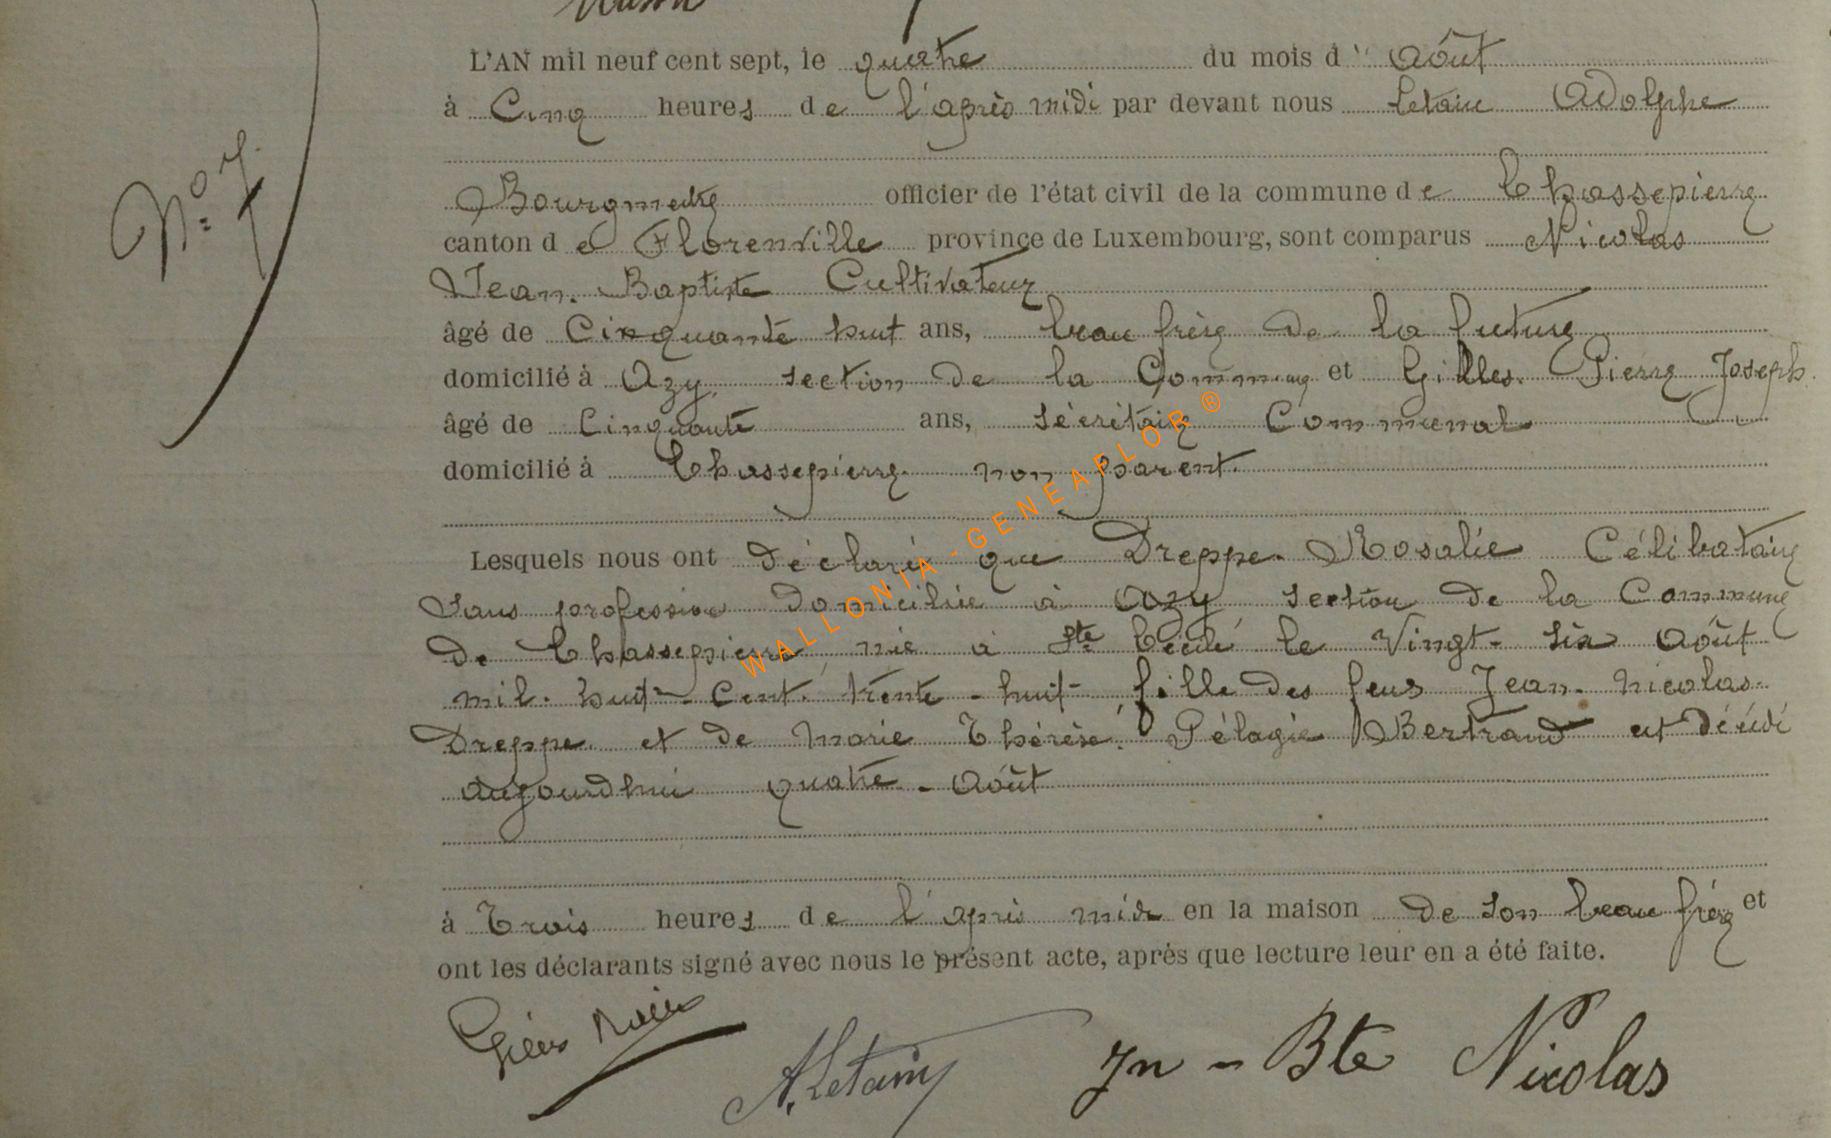 L'AN mil neuf cent sept, le quatre du mois d'' Août
à Cinq heures de l'après midi par devant nous Letaire Adolphe
N° 7
Bourgmestre officier de l'état civil de la commune de Chassepierre
canton de Florenville province de Luxembourg, sont comparus Nicolas
Jean-Baptiste Cultivateur
âgé de Cinquante huit ans, beau frère de la future
domicilié à Azy, section de la Commune et Gilles Pierre Joseph
âgé de Cinquante ans, sécrétaire Communal
domicilié à Chassepierre non parent.
Lesquels nous ont déclaré que Dreppe Rosalie Célibataire
sans profession domiciliée à Azy section de la Commune
de Chassepierre, née à Ste Cécile le Vingt-six Août
mil-huit-Cent-trente-huit fille des feus Jean-Nicolas
Dreppe et de Marie Thérèse Pélagie Bertrand est décédé
aujourdhui quatre-Août
à Trois heures de l'après midi en la maison de son beau frère et
ont les déclarants signé avec nous le présent acte, après que lecture leur en a été faite.
A. Letaire Jn-Bte Nicolas
WALLONIA-GENEAFLOR®